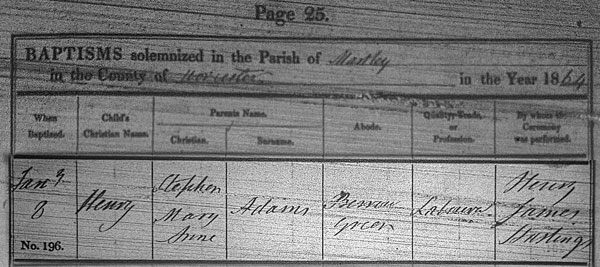 Page 25.
BAPTISMS solemnized in the Parish of Martley
in the County of Worcester in the Year 1864
When Baptized.
Child's Christian Name.
Parents Name.
Christian.
Surname.
Abode.
Quality, Trade, or Profession.
By whom the Ceremony was performed.
Jany
3
No. 196.
Henry
Stephen
Mary
Anne
Adams
Berrow
Green
Labourer
Henry
James
Hastings